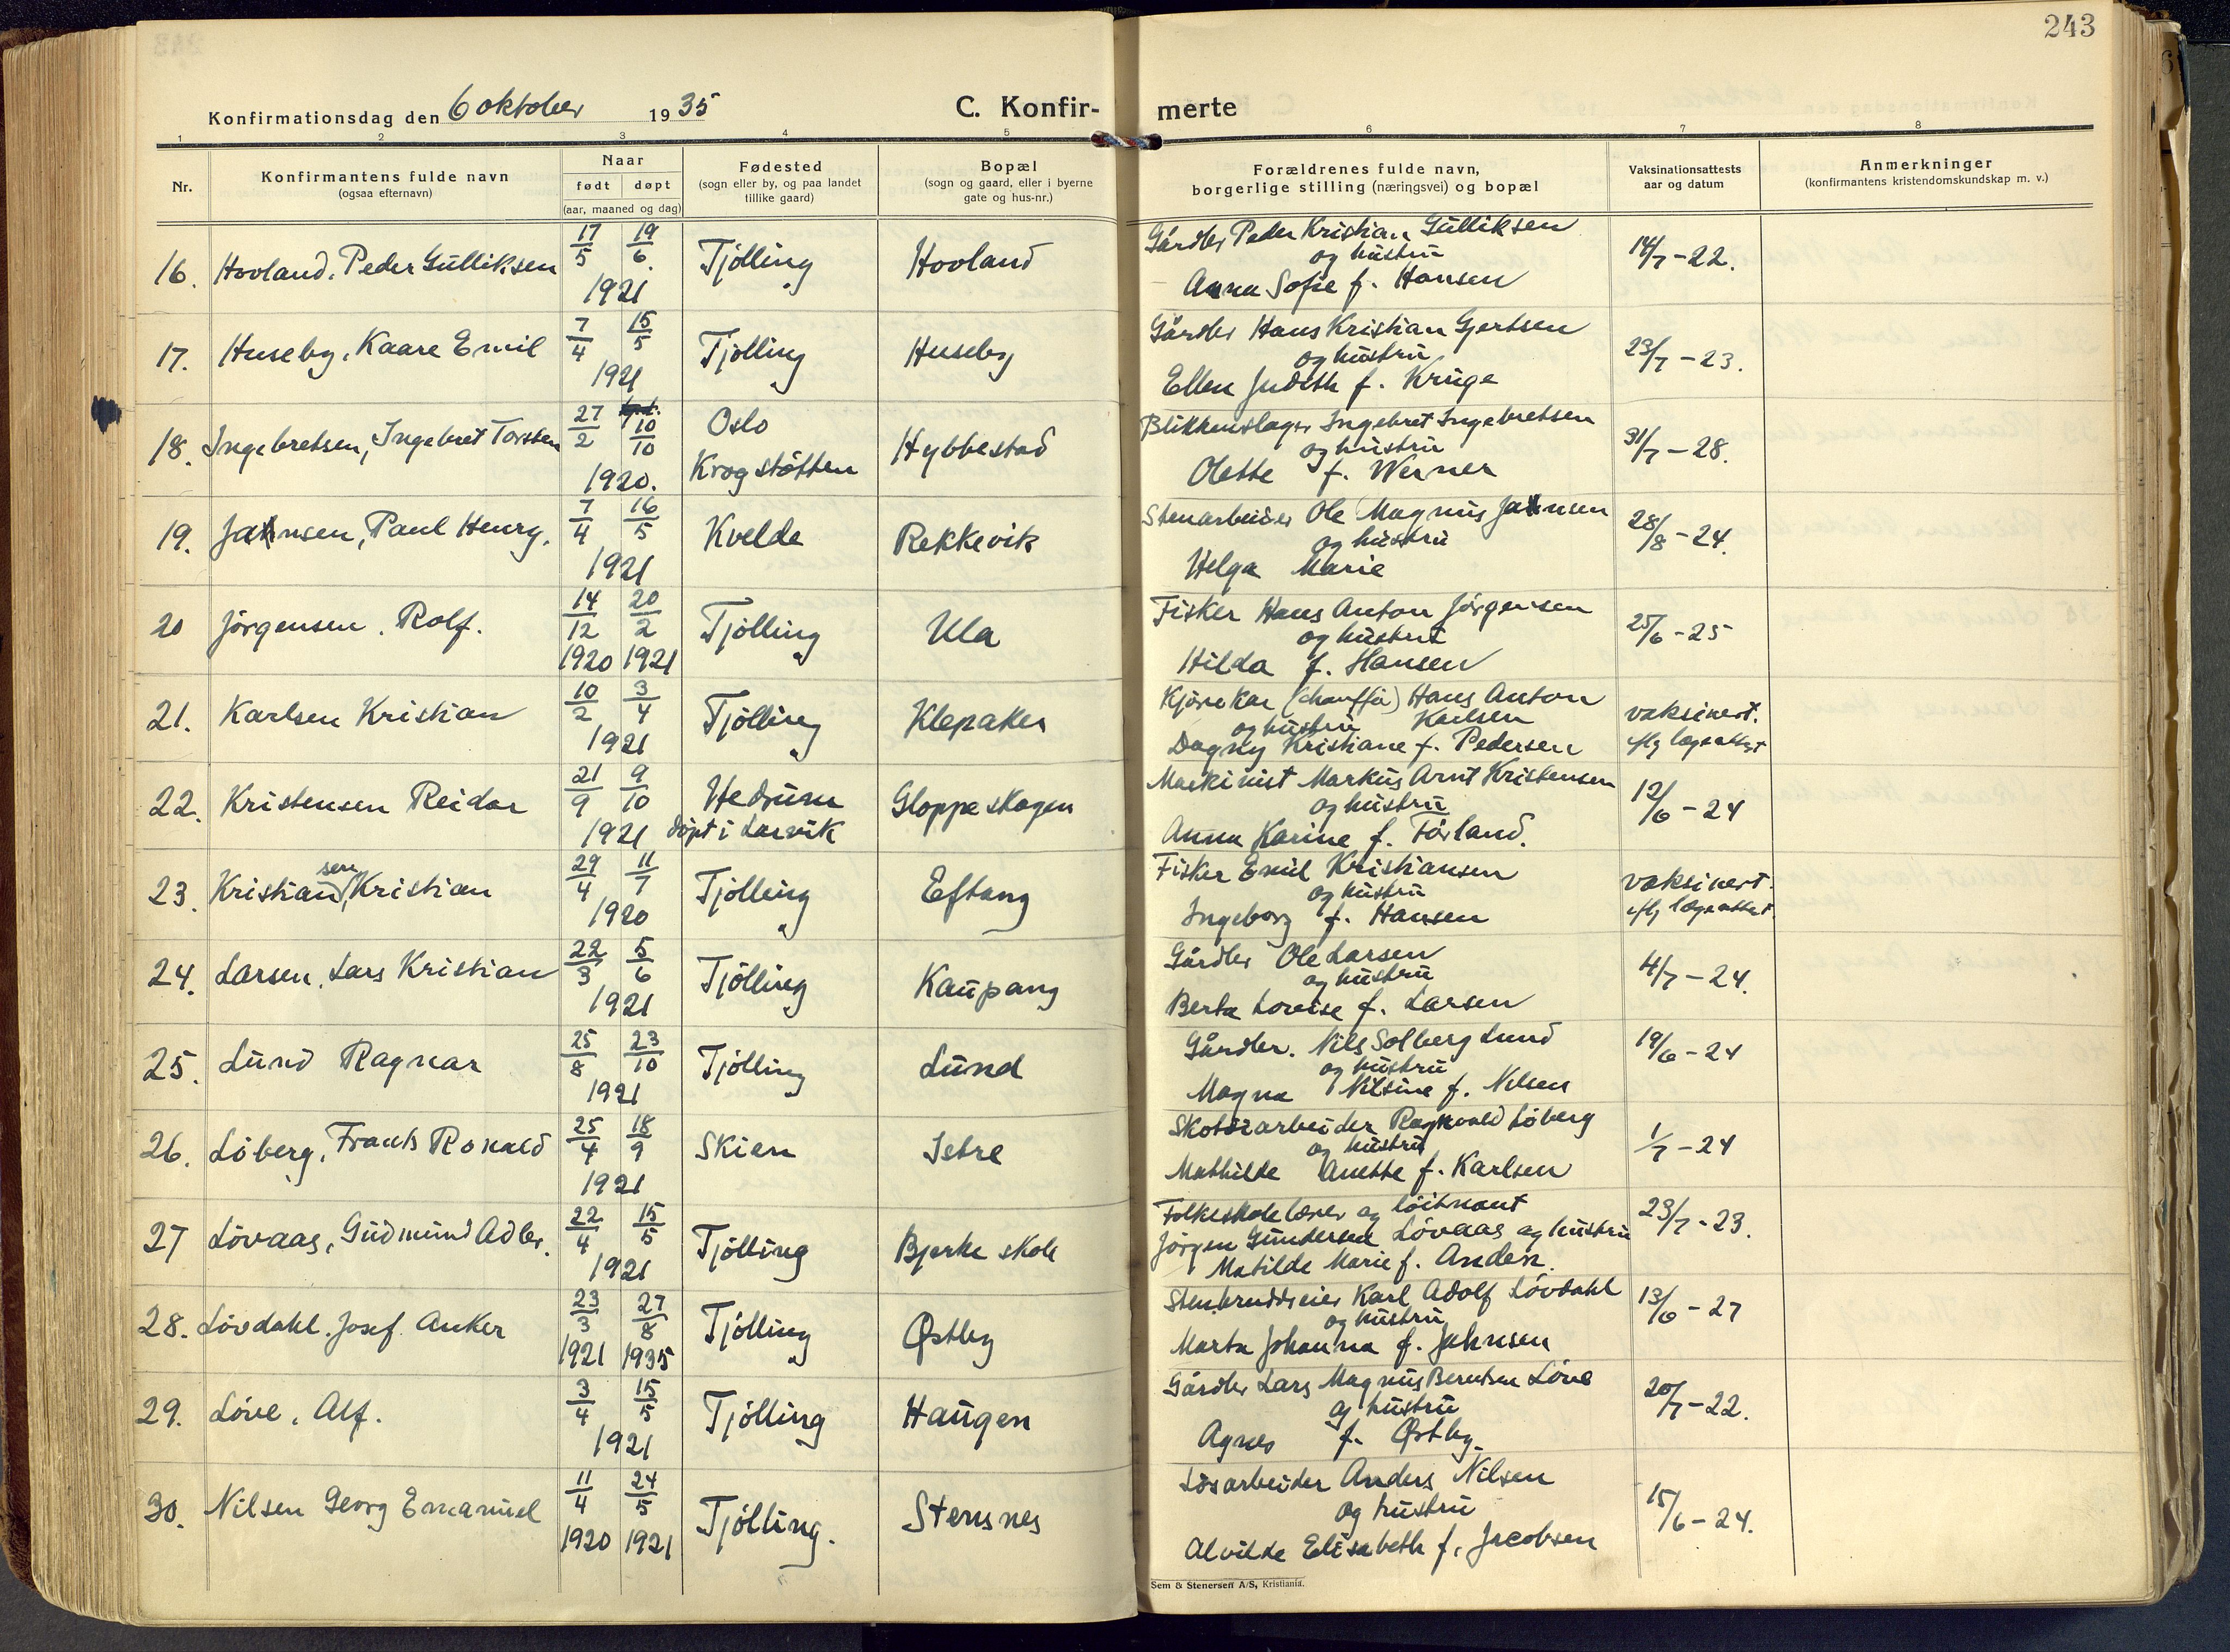 243
Konfirmationsdag den 6 oktober 1935
C. Konfirmerte
1 2 3 4 5 6 7 8
Nr.
Konfirmantens fulde navn
(ogsaa efternavn)
Naar
født døpt
(aar, maaned og dag)
Fødested
(sogn eller by, og paa landet
tillike gaard)
Bopæl
(sogn og gaard, eller i byerne
gate og hus-nr.)
Forældrenes fulde navn,
borgerlige stilling (næringsvei) og bopæl
Vaksinationsattests
aar og datum
Anmerkninger
(konfirmantens kristendomskundskap m. v.)
16. Hovland, Peder Gulliksen 17/5 19/6. 1921 Tjølling Hovland
Gårdbr Peder Kristian Gulliksen
og hustru
Anna Sofie f. Hansen
14/7-22.
17. Huseby, Kaare Emil 7/4 15/5 1921 Tjølling Huseby
Gårdbr Hans Kristian Gjertsen
og hustru
Ellen Judith f. Kruge
23/7-23.
18. Ingebretsen, Ingebret Torsten 27/2 10/10 1920. Oslo
Krogstøtten
Hybbestad
Blikkenslager Ingebret Ingebretsen
og hustru
Olette f. Werner
31/7-28.
19. Jahnsen, Paul Henry. 7/4 16/5 1921 Kvelde Rekkevik
Stenarbeider Ole Magnus Jahnsen
og hustru
Helga Marie
28/8-24.
20 Jørgensen. Rolf. 14/12 1920 20/2 1921 Tjølling Ula
Fisker Hans Anton Jørgensen
og hustru
Hilda f. Hansen
25/6-25
21. Karlsen Kristian 10/2 3/4 1921 Tjølling Klepaker
Kjørekar (chauffør) Hans Anton
og hustru Karlsen
Dagny Kristiane f. Pedersen
vaksinert.
iflg lægeattest
22. Kristensen Reidar 21/9 9/10 1921 Hedrum
døpt i Larvik
Gloppeskogen
Maskinist Markus Arnt Kristensen
og hustru
Anna Karine f. Førland.
12/6-24
23. Kristiansen, Kristian 29/4 11/7 1920 Tjølling Eftang
Fisker Emil Kristiansen
og hustru
Ingeborg f. Hansen
vaksinert.
iflg lægeattest.
24. Larsen, Lars Kristian 22/3 5/6 1921 Tjølling Kaupang
Gårdbr Ole Larsen
og hustru
Berta Lovise f. Larsen
4/7-24.
25. Lund Ragnar 25/8 23/10 1921 Tjølling Lund
Gårdbr. Nils Solberg Lund
og hustru
Magna Nilsine f. Nilsen
19/6-24
26. Løberg, Frants Ronald 25/4 18/9 1921 Skien Istre
Skotøiarbeider Ragnvald Løberg
og hustru
Mathilde Anette f. Karlsen
1/7-24
27 Løvaas, Gudmund Adler. 22/4 15/5 1921 Tjølling Bjerke skole
Folkeskolelærer og løitnant
Jørgen Gundersen Løvaas og hustru
Matilde Marie f. Andersen.
23/7-23.
28. Løvdahl. Josef Anker 23/3 1921 27/8 1935 Tjølling Østby
Stenbruddseier Karl Adolf Løvdahl
og hustru
Marta Johanna f. Jahnsen
13/6-27
29. Løve, Alf. 3/4 15/5 1921 Tjølling Haugen
Gårdbr Lars Magnus Berntsen Løve
og hustru
Agnes f. Østby.
20/7-22.
30. Nilsen Georg Emanuel 11/4 1920 24/5 1921 Tjølling. Stensnes
Løsarbeider Anders Nilsen
og hustru
Alvilde Elisabeth f. Jacobsen
15/6-24.
Sem & Stenersen A/S, Kristiania.